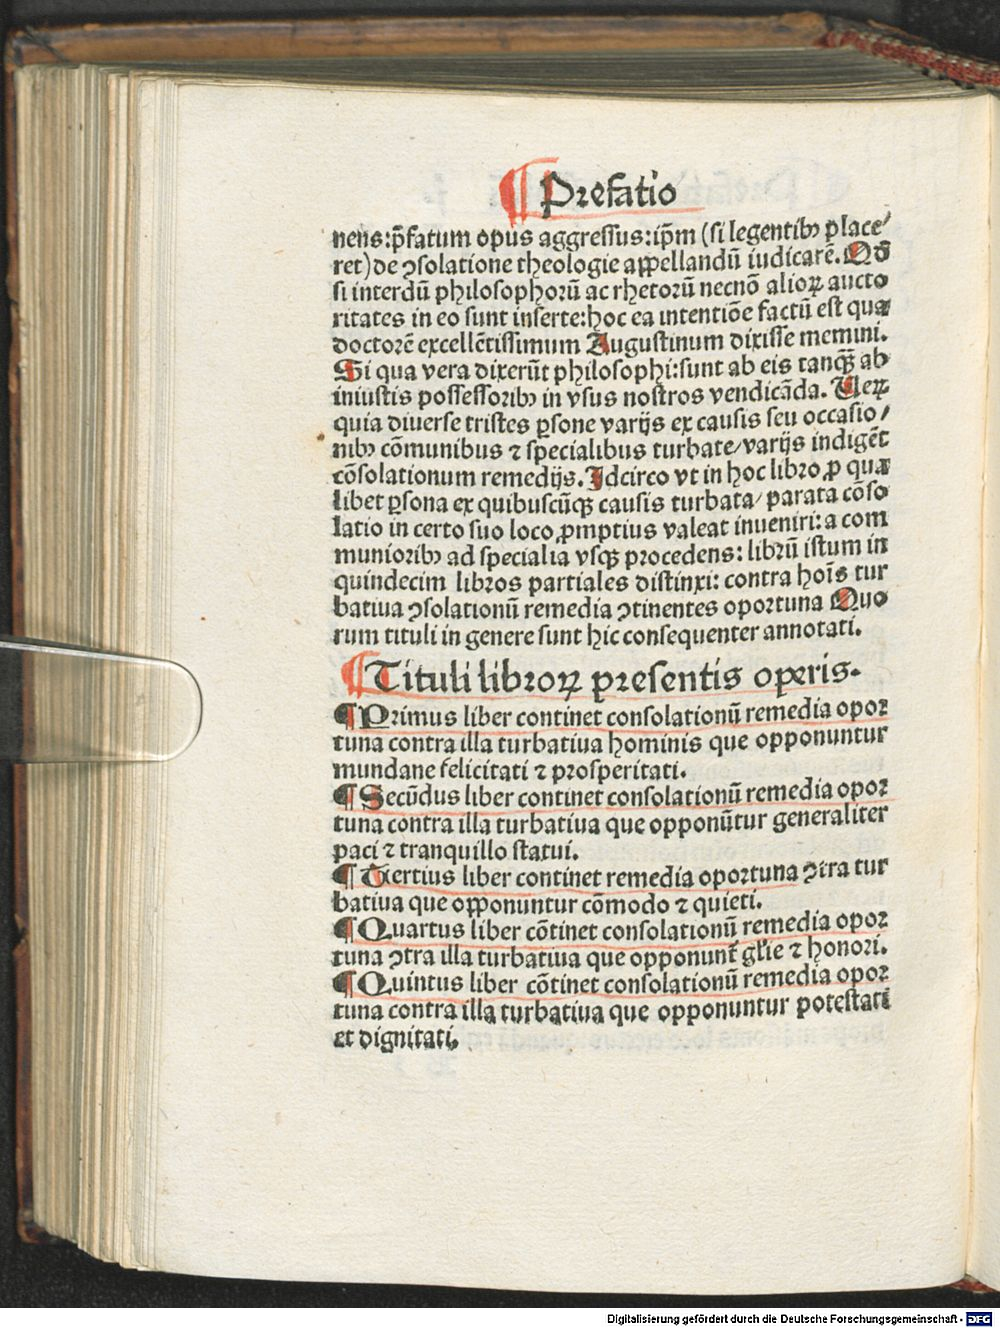 ¶ Prefatio
nens:p̄fatum opus aggressus:ip̄m (si legentibꝰ place⸗
ret) de ꝯsolatione theologie appellandū iudicarē. Qđ
si interdū philosophorū ac rhetorū necnō alioꝝ aucto
ritates in eo sunt inserte:hoc ea intentiōe factū est qua
doctorē excellētissimum Augustinum dixisse memini.
Si qua vera dixerūt philosophi:sunt ab eis tanqꝫ ab
iniustis possessoribꝰ in vsus nostros vendicāda. Ueꝝ
quia diuerse tristes ꝑsone varijs ex causis seu occasio/
nibꝰ cōmunibus ⁊ specialibus turbate/varijs indigēt
cōsolationum remedijs. Idcirco vt in hoc libro ꝓ qua
libet ꝑsona ex quibuscūqꝫ causis turbata/ parata cōso
latio in certo suo loco ꝓmptius valeat inueniri: a com
munioribꝰ ad specialia vsqꝫ procedens: librū istum in
quindecim libros partiales distinxi: contra hoīs tur
batiua ꝯsolationū remedia ꝯtinentes oportuna Quo
rum tituli in genere sunt hic consequenter annotati.
¶ Tituli libroꝝ presentis operis.
¶ Primus liber continet consolationū remedia opor
tuna contra illa turbatiua hominis que opponuntur
mundane felicitati ⁊ prosperitati.
¶ Secūdus liber continet consolationū remedia opor
tuna contra illa turbatiua que opponūtur generaliter
paci ⁊ tranquillo statui.
¶ Tertius liber continet remedia oportuna ꝯtra tur
batiua que opponuntur cōmodo ⁊ quieti.
¶ Quartus liber cōtinet consolationū remedia opor
tuna ꝯtra illa turbatiua que opponunt᷑ gl̄ie ⁊ honori.
¶ Quintus liber cōtinet consolationū remedia opor
tuna contra illa turbatiua que opponuntur potestati
et dignitati.
Digitalisierung gefördert durch die Deutsche Forschungsgemeinschaft - DFG